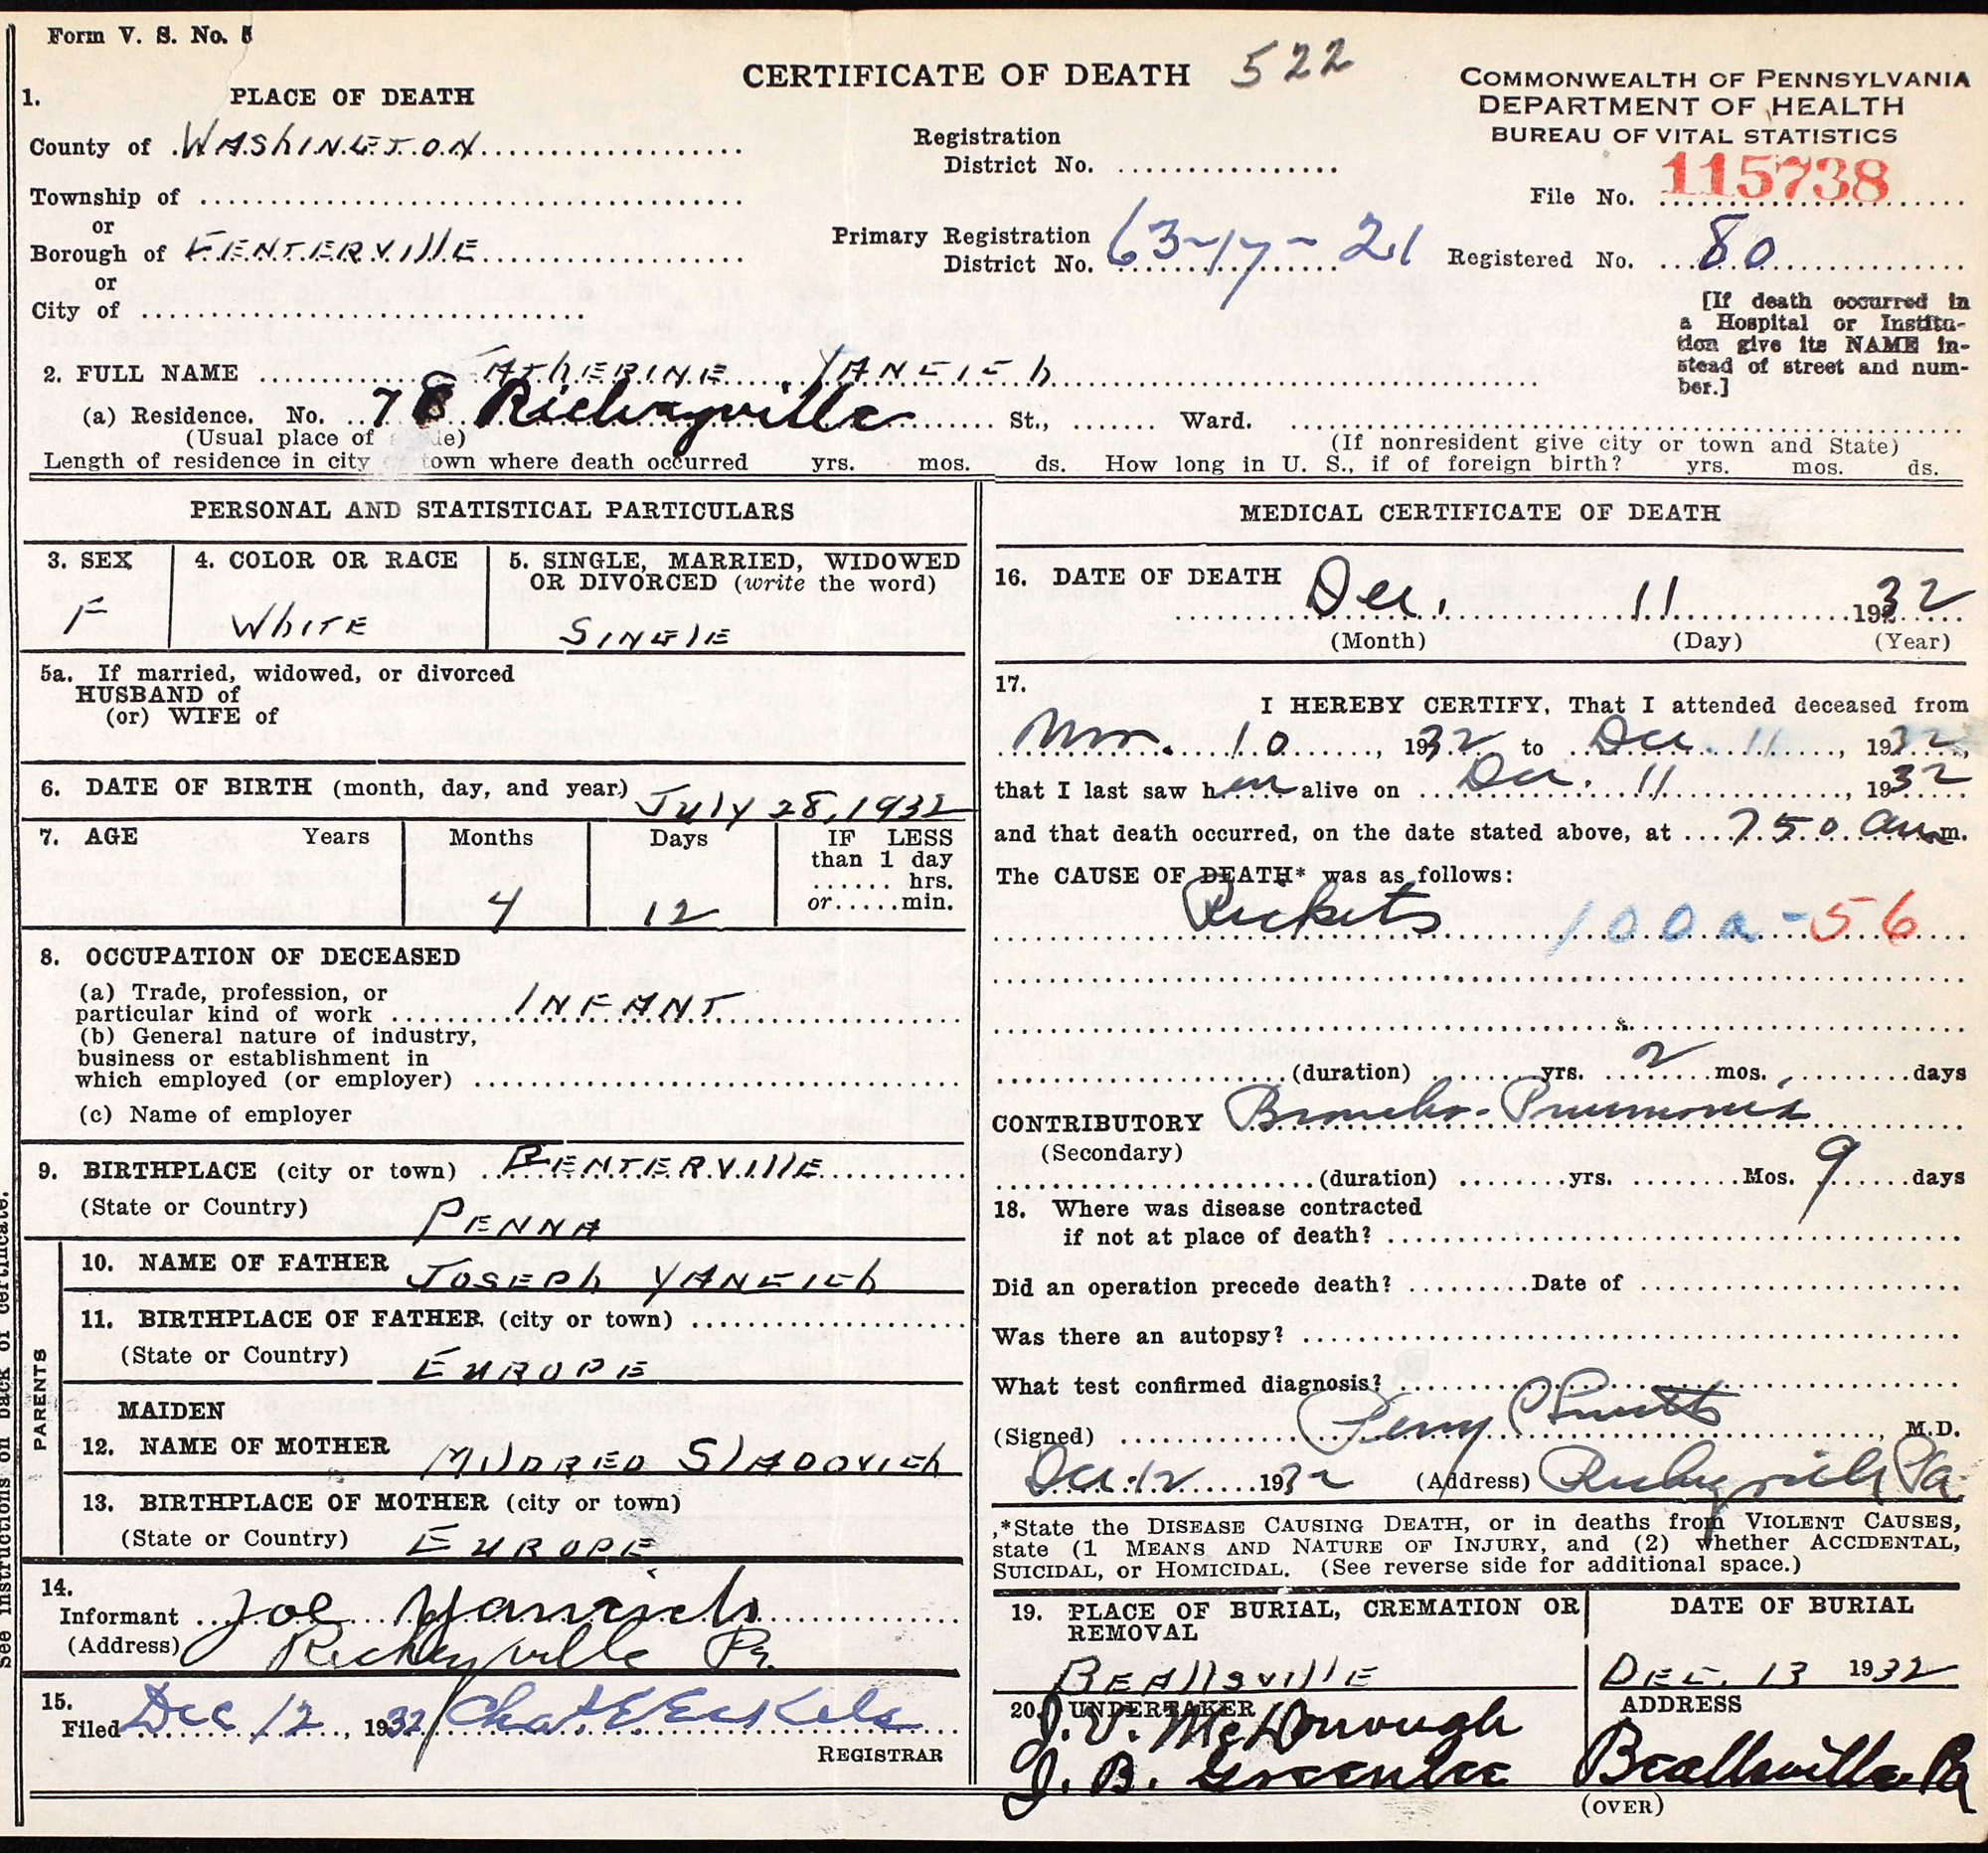 Form V. S. No. 5
CERTIFICATE OF DEATH 522
COMMONWEALTH OF PENNSYLVANIA
DEPARTMENT OF HEALTH
BUREAU OF VITAL STATISTICS
1. PLACE OF DEATH
County of WAShINGTON
Registration
District No.
File No. 115738
Township of
or
Borough of CENTERVIllE
Primary Registration
District No. 63-17-21
Registered No. 80
or
City of
[If death occurred in
a Hospital or Institu-
tion give its NAME in-
stead of street and num-
ber.]
2. FULL NAME CAThERINE YANCICh
(a) Residence. No. 78 Richeyville St., Ward.
(Usual place of
(If nonresident give city or town and State)
Length of residence in city or town where death occurred yrs. mos. ds. How long in U. S., if of foreign birth? yrs. mos. ds.
PERSONAL AND STATISTICAL PARTICULARS
3. SEX
F
4. COLOR OR RACE
WhITE
5. SINGLE, MARRIED, WIDOWED
OR DIVORCED (write the word)
SINGlE
5a. If married, widowed, or divorced
HUSBAND of
(or) WIFE of
6. DATE OF BIRTH (month, day, and year) JUlY 28, 1932
7. AGE Years Months Days IF LESS
than 1 day
hrs.
or min.
4 12
8. OCCUPATION OF DECEASED
(a) Trade, profession, or
particular kind of work INFANT
(b) General nature of industry,
business or establishment in
which employed (or employer)
(c) Name of employer
9. BIRTHPLACE (city or town) CENTERVIllE
(State or Country) PENNA
PARENTS
10. NAME OF FATHER JOSEPh YANCICh
11. BIRTHPLACE OF FATHER (city or town)
(State or Country) EUROPE
MAIDEN
12. NAME OF MOTHER MIlDRED SlADOVICh
13. BIRTHPLACE OF MOTHER (city or town)
(State or Country) EUROPE
14.
Informant Joe Yancich
(Address) Richeyville Pa.
15.
Filed Dec 12, 1932 Chas. E Eckels
REGISTRAR
See instructions on back of certificate.
MEDICAL CERTIFICATE OF DEATH
16. DATE OF DEATH Dec. 11 1932
(Month) (Day) (Year)
17.
I HEREBY CERTIFY, That I attended deceased from
Nov. 10, 1932 to Dec. 11, 1932,
that I last saw her alive on Dec. 11, 1932
and that death occurred, on the date stated above, at 750 am.
The CAUSE OF DEATH* was as follows:
Rickets 100a-56
(duration) yrs. 2 mos. days
CONTRIBUTORY Broncho-Pneumonia
(Secondary)
(duration) yrs. Mos. 9 days
18. Where was disease contracted
if not at place of death?
Did an operation precede death? Date of
Was there an autopsy?
What test confirmed diagnosis?
(Signed) Perry C Smith, M.D.
Dec. 12 1932 (Address) Richeyville Pa.
*State the DISEASE CAUSING DEATH, or in deaths from VIOLENT CAUSES,
state (1 MEANS AND NATURE OF INJURY, and (2) whether ACCIDENTAL,
SUICIDAL, or HOMICIDAL. (See reverse side for additional space.)
19. PLACE OF BURIAL, CREMATION OR
REMOVAL
BEAllSVIllE
DATE OF BURIAL
DEC. 13 1932
20. UNDERTAKER
J. V. McDonough
J. B. Greenlee
ADDRESS
Beallsville Pa
(OVER)